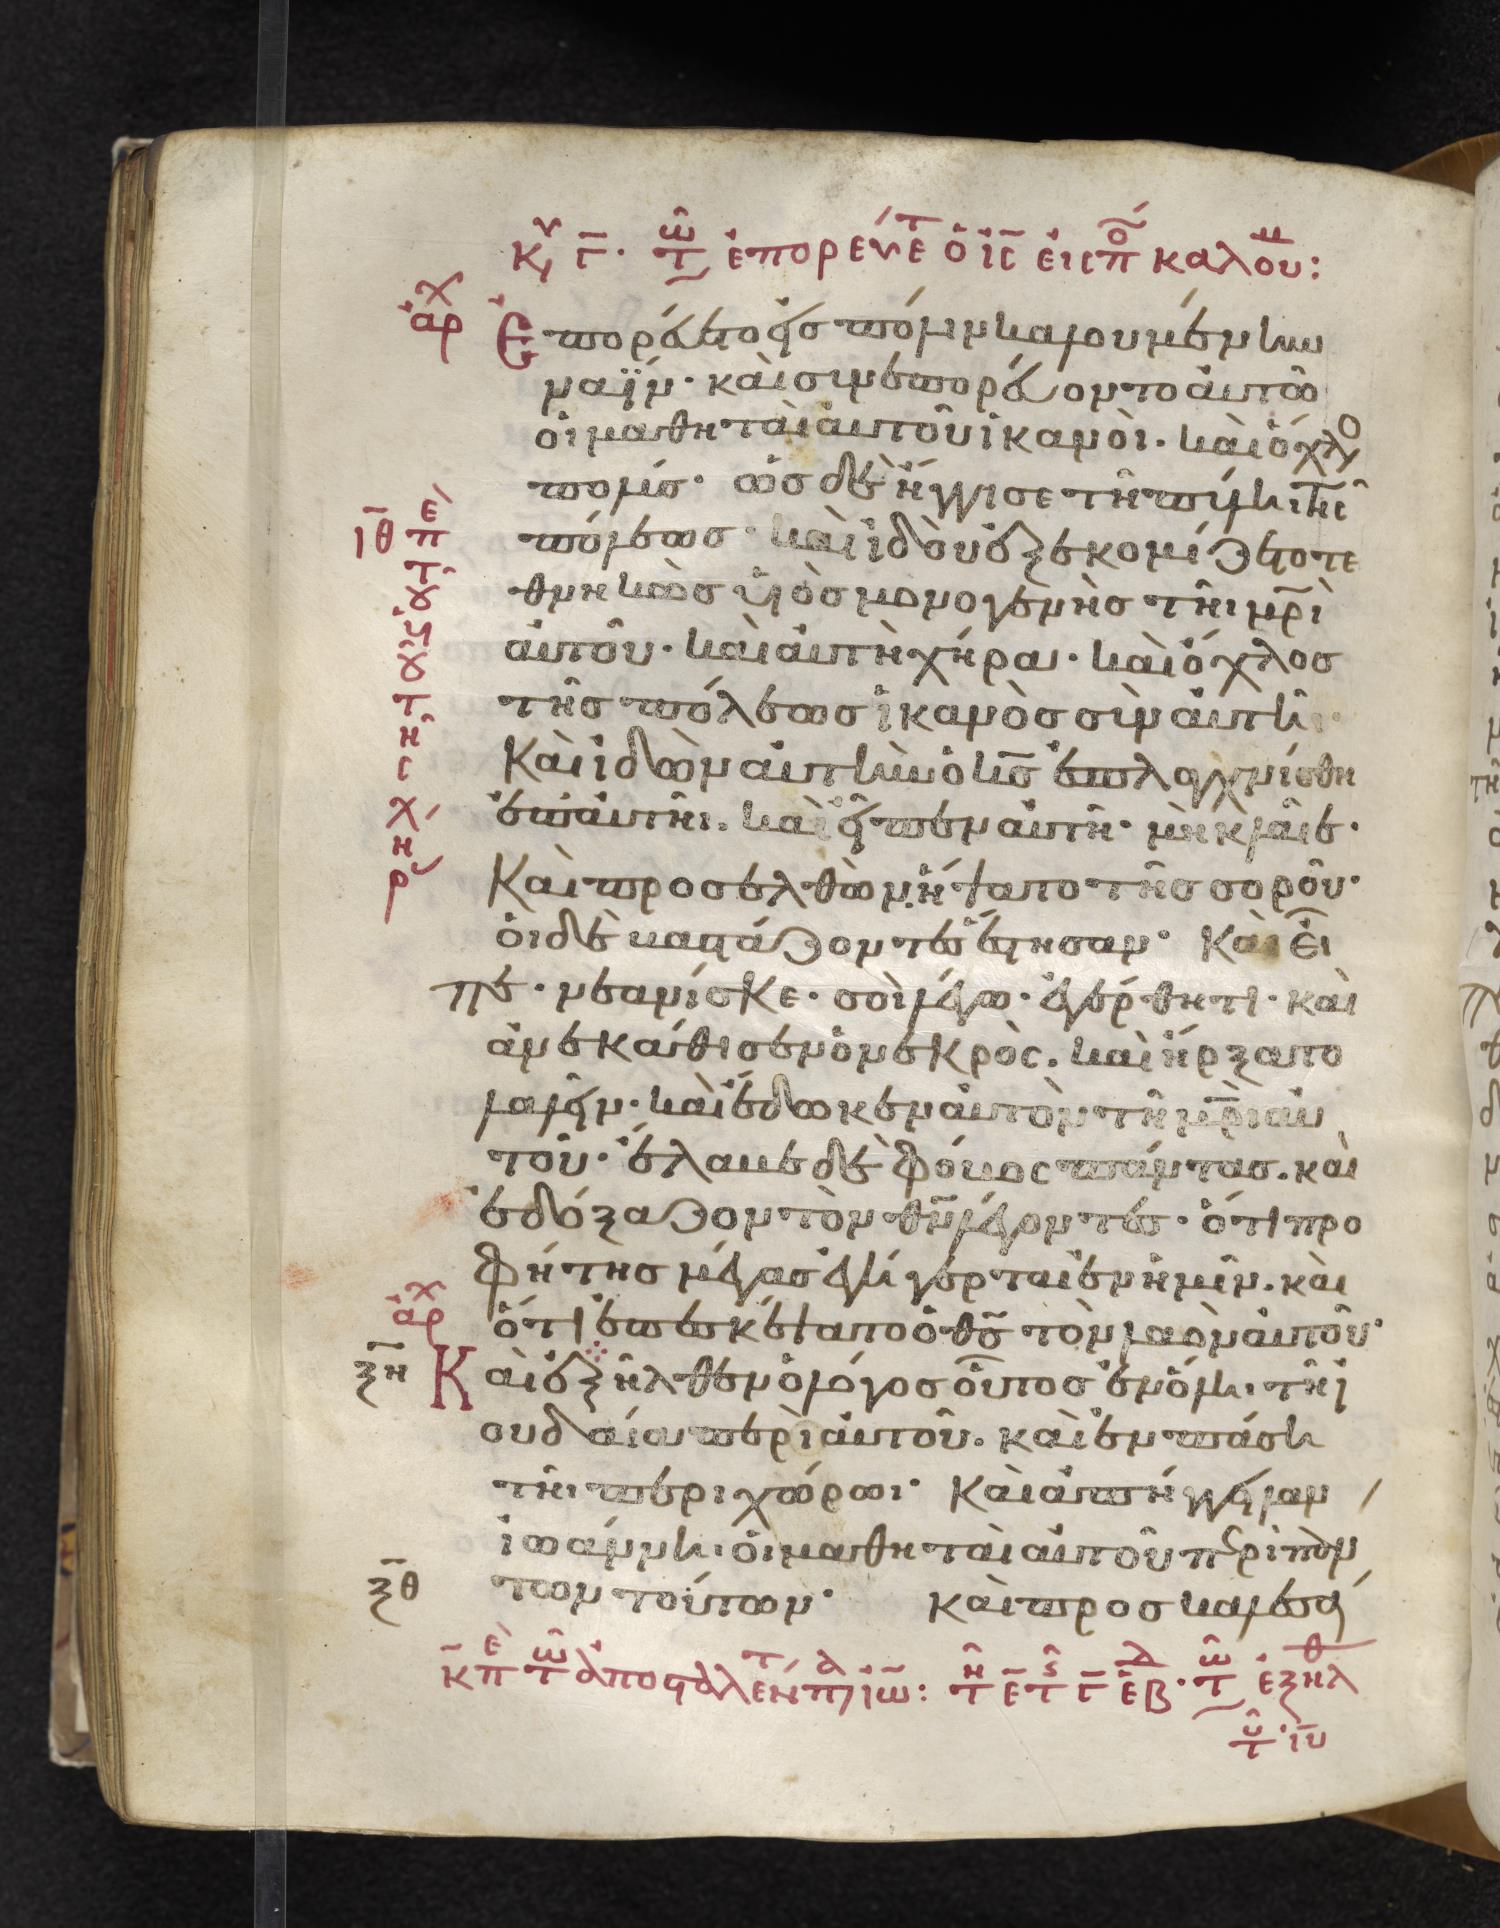 Κυ γ̄· τῶ ἐπορεύετ ὁ ι̅ς̅ εἰς πο καλουμ:
ἀρχ
Ἐπορεύετο εἰς πόλιν καλουμένην
ναΐν· καὶ συνεπορεύοντο αὐτῶ
οἱ μαθηταὶ αὐτοῦ ἱκανοὶ· καὶ ὄχλο
πολύς· ὡς δὲ ἤγγισε τῆ πύλη τῆς
ι̅θ̅ πε
πόλεως· καὶ ἰδοὺ ἐξεκομίζετο τε
θνηκὼς υἱὸς μονογενὴς τῆι μ̅ρ̅ὶ
αὐτοῦ· καὶ αὐτὴ χήρα· καὶ ὄχλος
τοῦ υἱοῦ τῆς χήρ
τῆς πόλεως ἱκανὸς σὺν αὐτῆ·
Καὶ ἰδὼν αὐτὴν ὁ κ̅ς̅ ἐσπλαγχνίσθη
ἐπ' αὐτῆι· καὶ εἶπεν αὐτῆ· μὴ κλαῖε·
Καὶ προσελθὼν ἥψατο τῆς σοροῦ·
οἱ δὲ βαστάζοντες ἔστησαν· Καὶ εἶ
πε· νεανίσκε· σοὶ λέγω· ἐγέρθητι· καὶ
ἀνεκάθισεν ὁ νεκρὸς· καὶ ἤρξατο
λαλεῖν· καὶ ἔδωκεν αὐτὸν τῆ μ̅ρ̅ὶ αὐ
τοῦ· ἔλαβε δὲ φόβος πάντας· καὶ
ἐδόξαζον τὸν θ̅ν̅ λέγοντες· ὅτι προ
φήτης μέγας ἐγήγερται ἐν ἡμῖν· καὶ
ὅτι ἐπεσκέψατο ὁ θ̅ς̅ τὸν λαὸν αὐτοῦ·
ἀρχ
ξ̅η̅
Καὶ ἐξῆλθεν ὁ λόγος οὗτος ἐν ὅλη τῆ ἰ
ουδαία περὶ αὐτοῦ· καὶ ἐν πάση
τῆι περιχώρωι· Καὶ ἀπήγγειλαν
ἰωάννη οἱ μαθηταὶ αὐτοῦ περὶ πάν
ξ̅θ̅
των τούτων· καὶ προσκαλεσά
κ̅ πε τῶ ἀποστόλ ἰω̅: τῆ ε̅ τς γ̅ ἑβ· τῶ ἐξῆλθ
ι̅υ̅